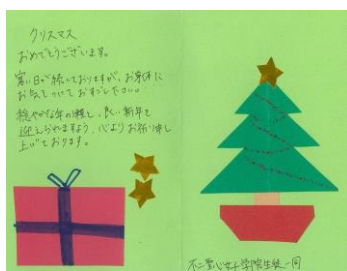 クリスマス
おめでとうございます。
寒い日が続いておりますが、お身体に
お気をつけておすごし下さい。
穏やかな年の瀬と、良い新年を
迎えられますよう、心よりお祈り申し
上げております。
不二聖心女子学院生徒一同